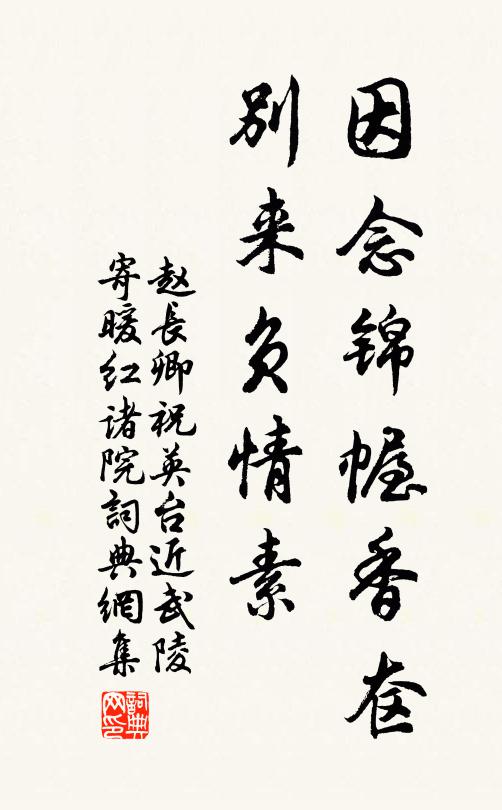 因念锦幄香奁
别来负情素
赵長卿祝英台近武陵
寄暖红诸院詞典網集
詞典网印